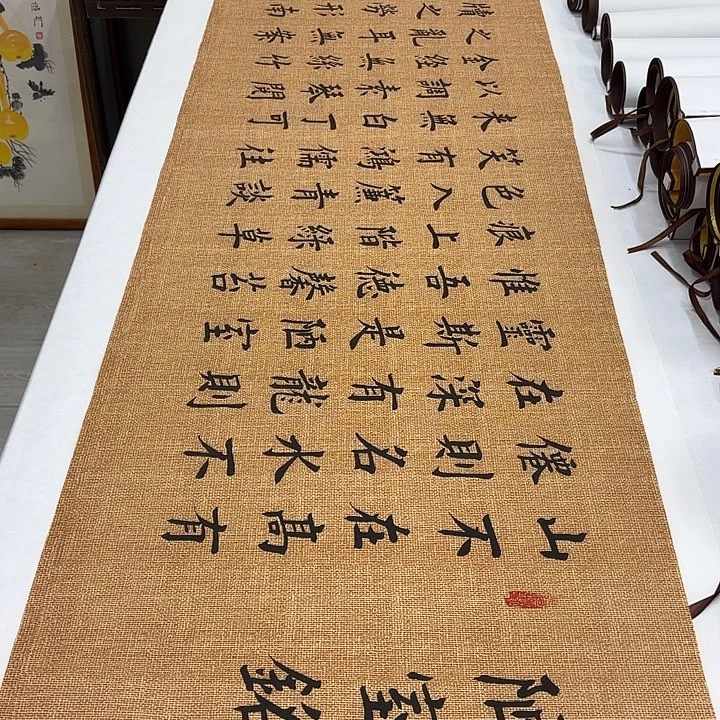 陋室銘
山不在高有
僊則名水不
在深有龍則
靈斯是陋室
惟吾德馨苔
痕上階綠草
色入簾青談
笑有鴻儒往
来無白丁可
以調素琴閱
金經無絲竹
之亂耳無案
牘之勞形南